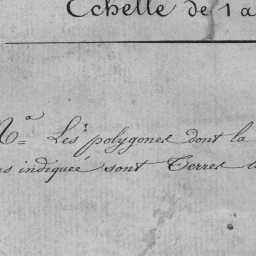 Echelle de 1 a
Nª= Les polygones dont la
es indiqueé sont Terres